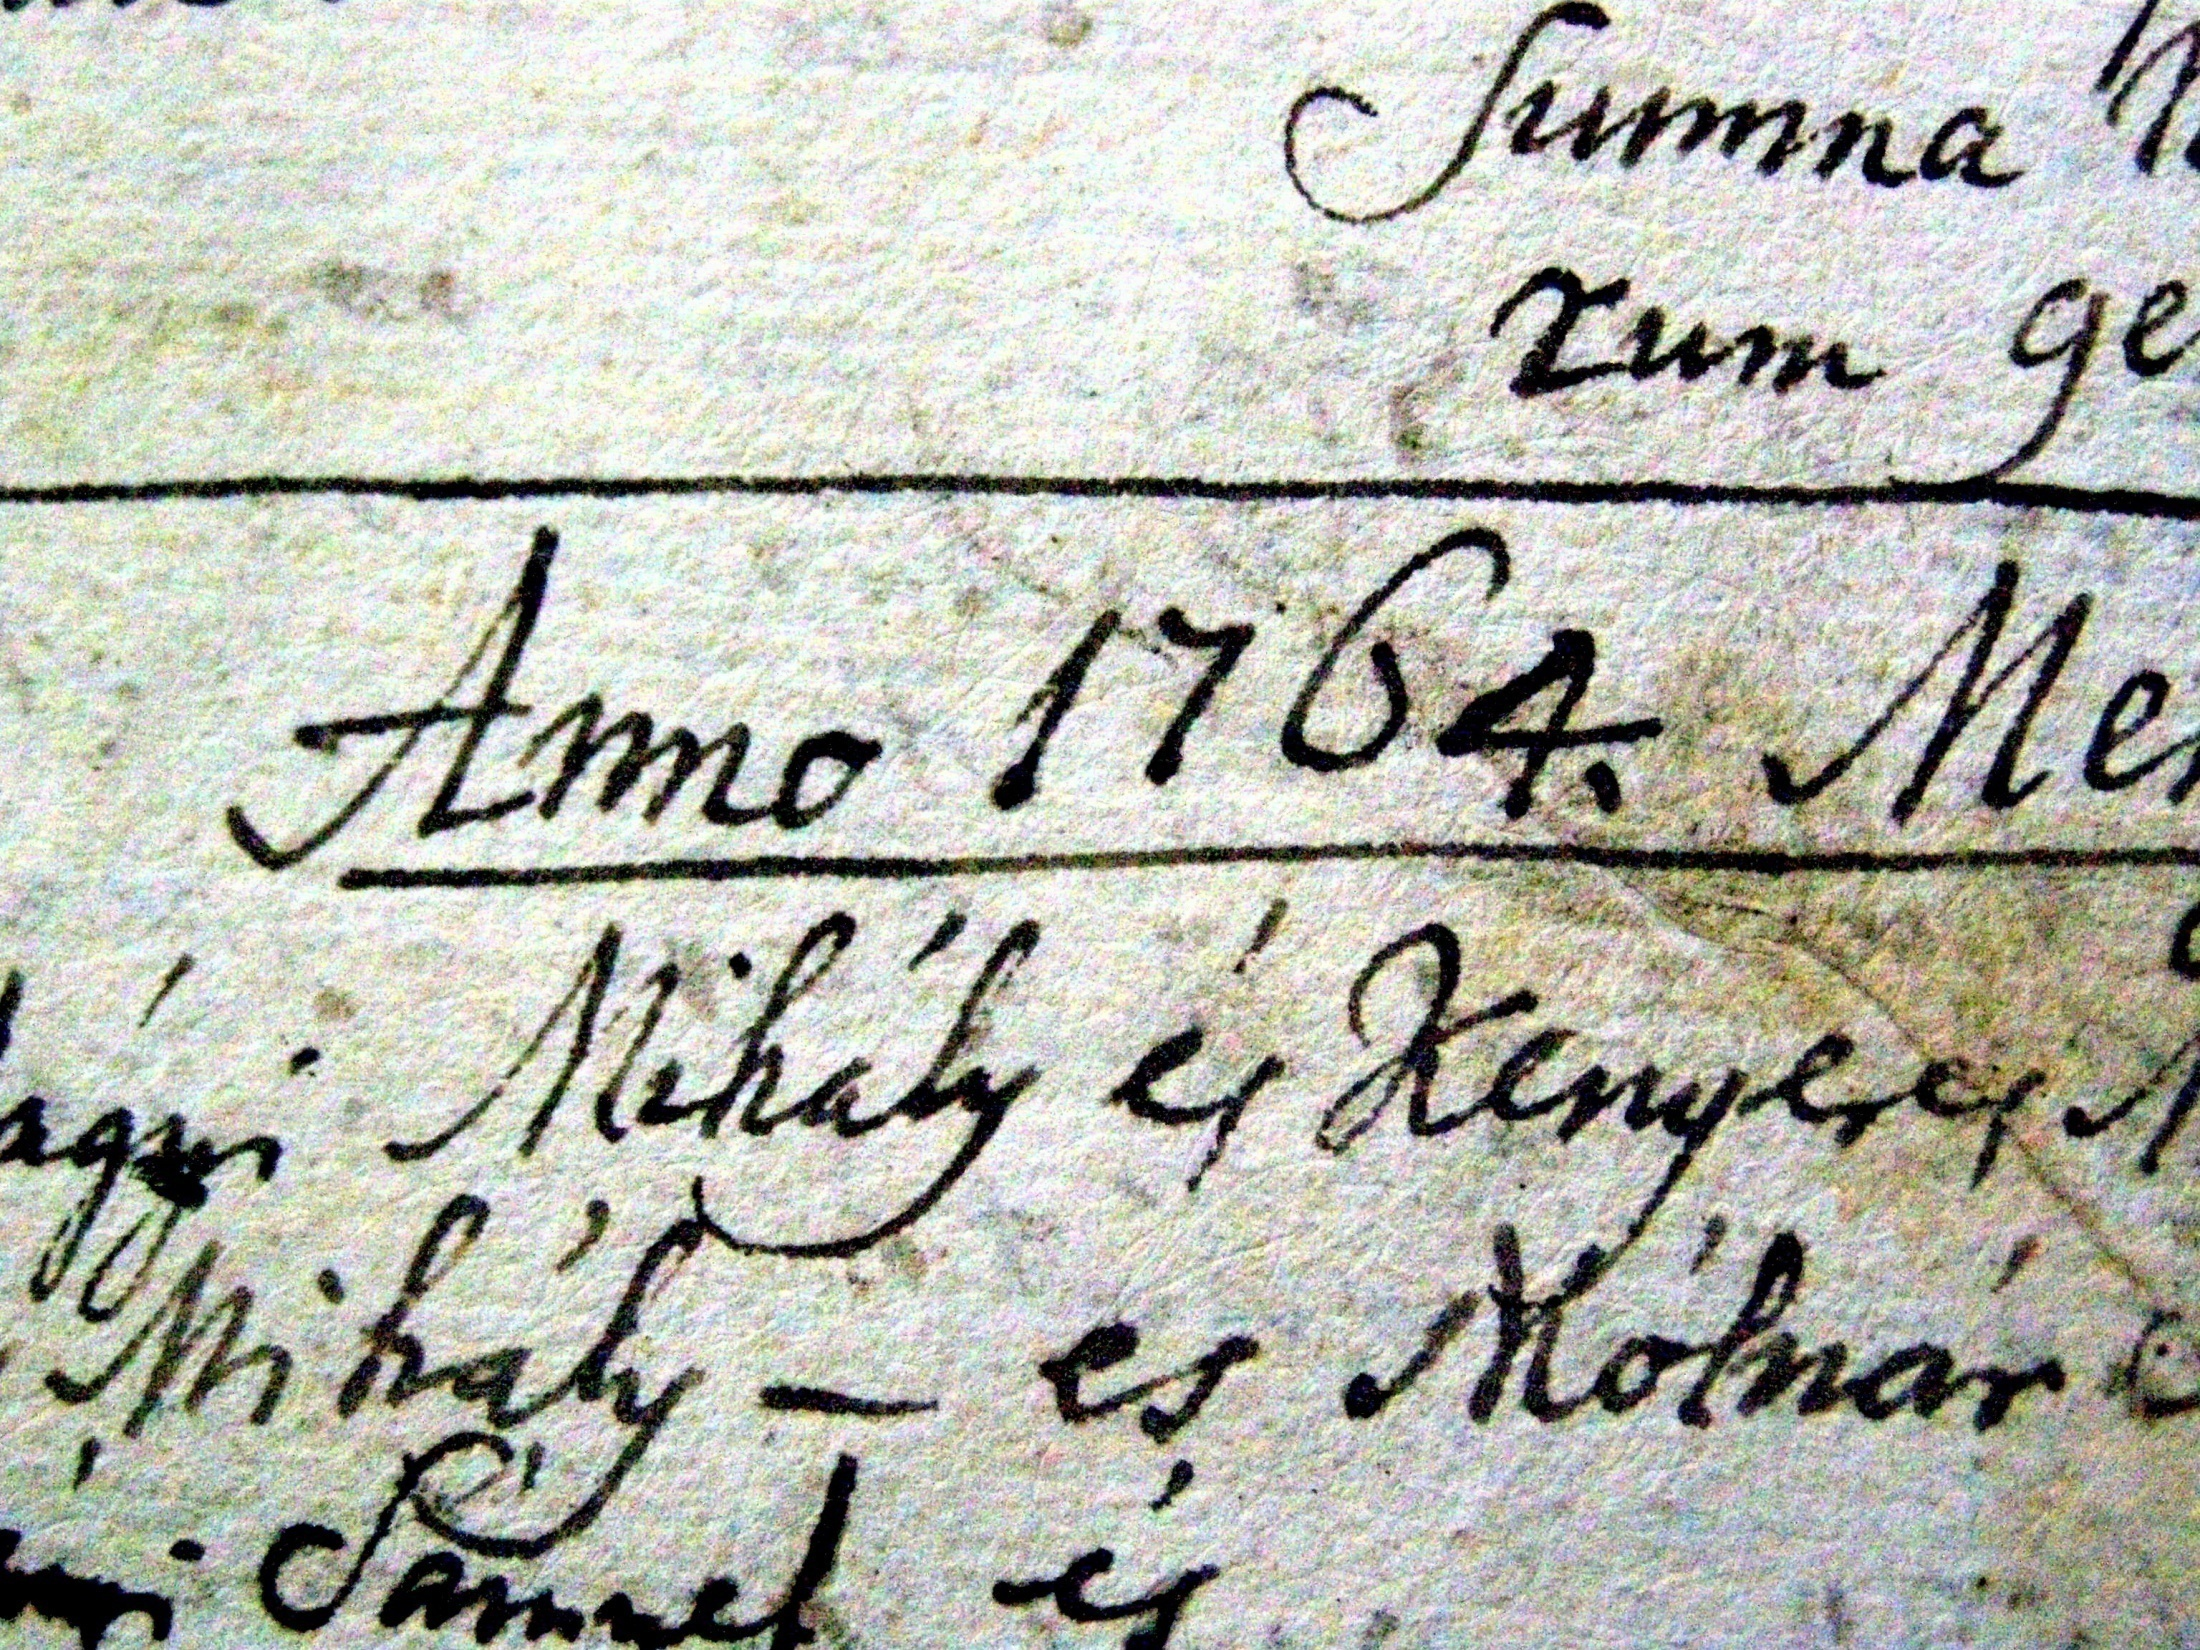 Summa
rum
Anno 1764.
Mihály és Kenyeres
Mihály – es Mólnár
Sámuel és